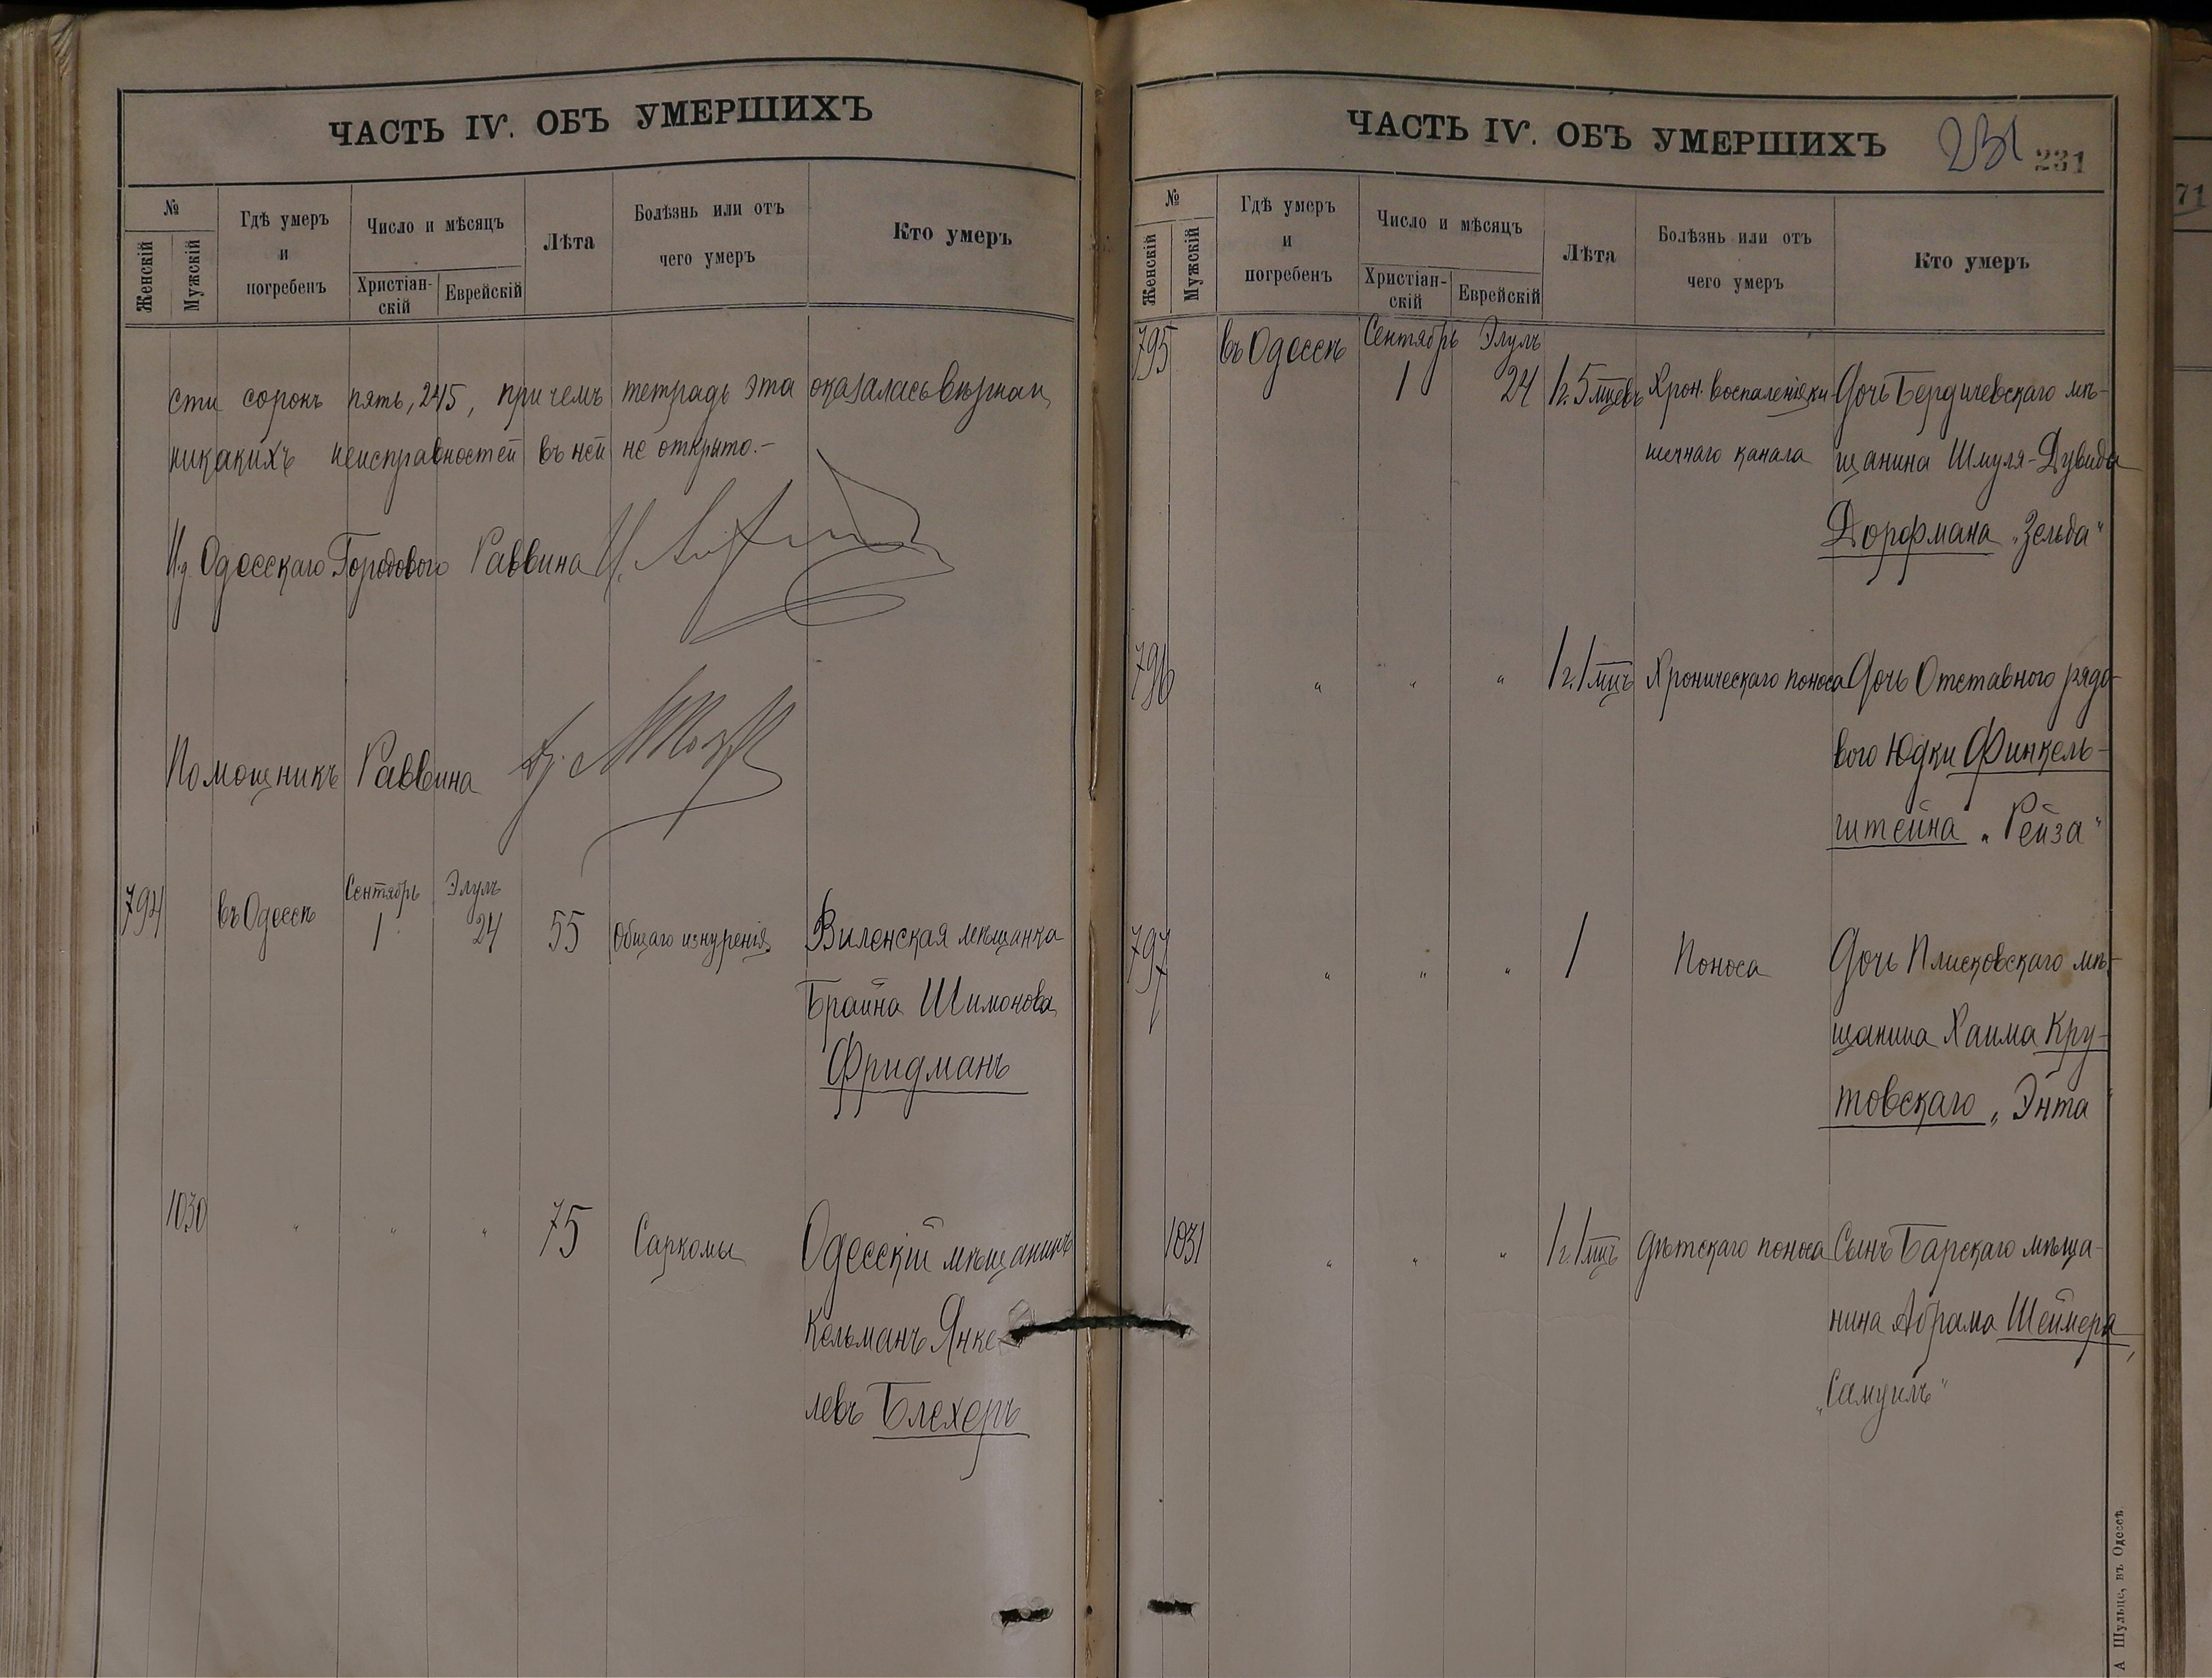 ЧАСТЬ IV. ОБЪ УМЕРШИХЪ
№
Женскій
Мужскій
Гдѣ умеръ
и
погребенъ
Число и мѣсяцъ
Христіан-
скій
Еврейскій
Лѣта
Болѣзнь или отъ
чего умеръ
Кто умеръ
сти сорокъ пять, 245, при чемъ тетрадь эта оказалась вѣрная,
никакихъ неисправностей въ ней не открыто.-
И.д. Одесскаго Городового Раввина
Помощникъ Раввина
794 въ Одессѣ Сентябрь 1 Элулъ 24 55 Общаго изнуренія Виленская мѣщанка
Брайна Шимонова
Фридманъ
1030 " " " 75 Саркомы Одесскій мѣщанинъ
Кельманъ Янке-
левъ Блехеръ
ЧАСТЬ IV. ОБЪ УМЕРШИХЪ 231 231
№
Женскій
Мужскій
Гдѣ умеръ
и
погребенъ
Число и мѣсяцъ
Христіан-
скій
Еврейскій
Лѣта
Болѣзнь или отъ
чего умеръ
Кто умеръ
795 въ Одессѣ Сентябрь 1 Элулъ 24 1г. 5 мцевъ Хрон. воспаленія ки Дочь Бердичевскаго мѣ-
шечнаго канала щанина Шмуля-Дувида
Дорфмана „Зельда"
796 " " " 1г. 1 мцъ Хроническаго поноса Дочь Отставного рядо-
вого Юдки Финкель-
штейна „Рейза"
797 " " " 1 Поноса Дочь Плисковскаго мѣ-
щанина Хаима Кру-
товскаго „Энта
1031 " " " 1г. 1 мцъ дѣтскаго поноса Сынъ Барскаго мѣща-
нина Абрама Шеймера,
„Самуилъ"
А Шульце, въ Одессѣ
71